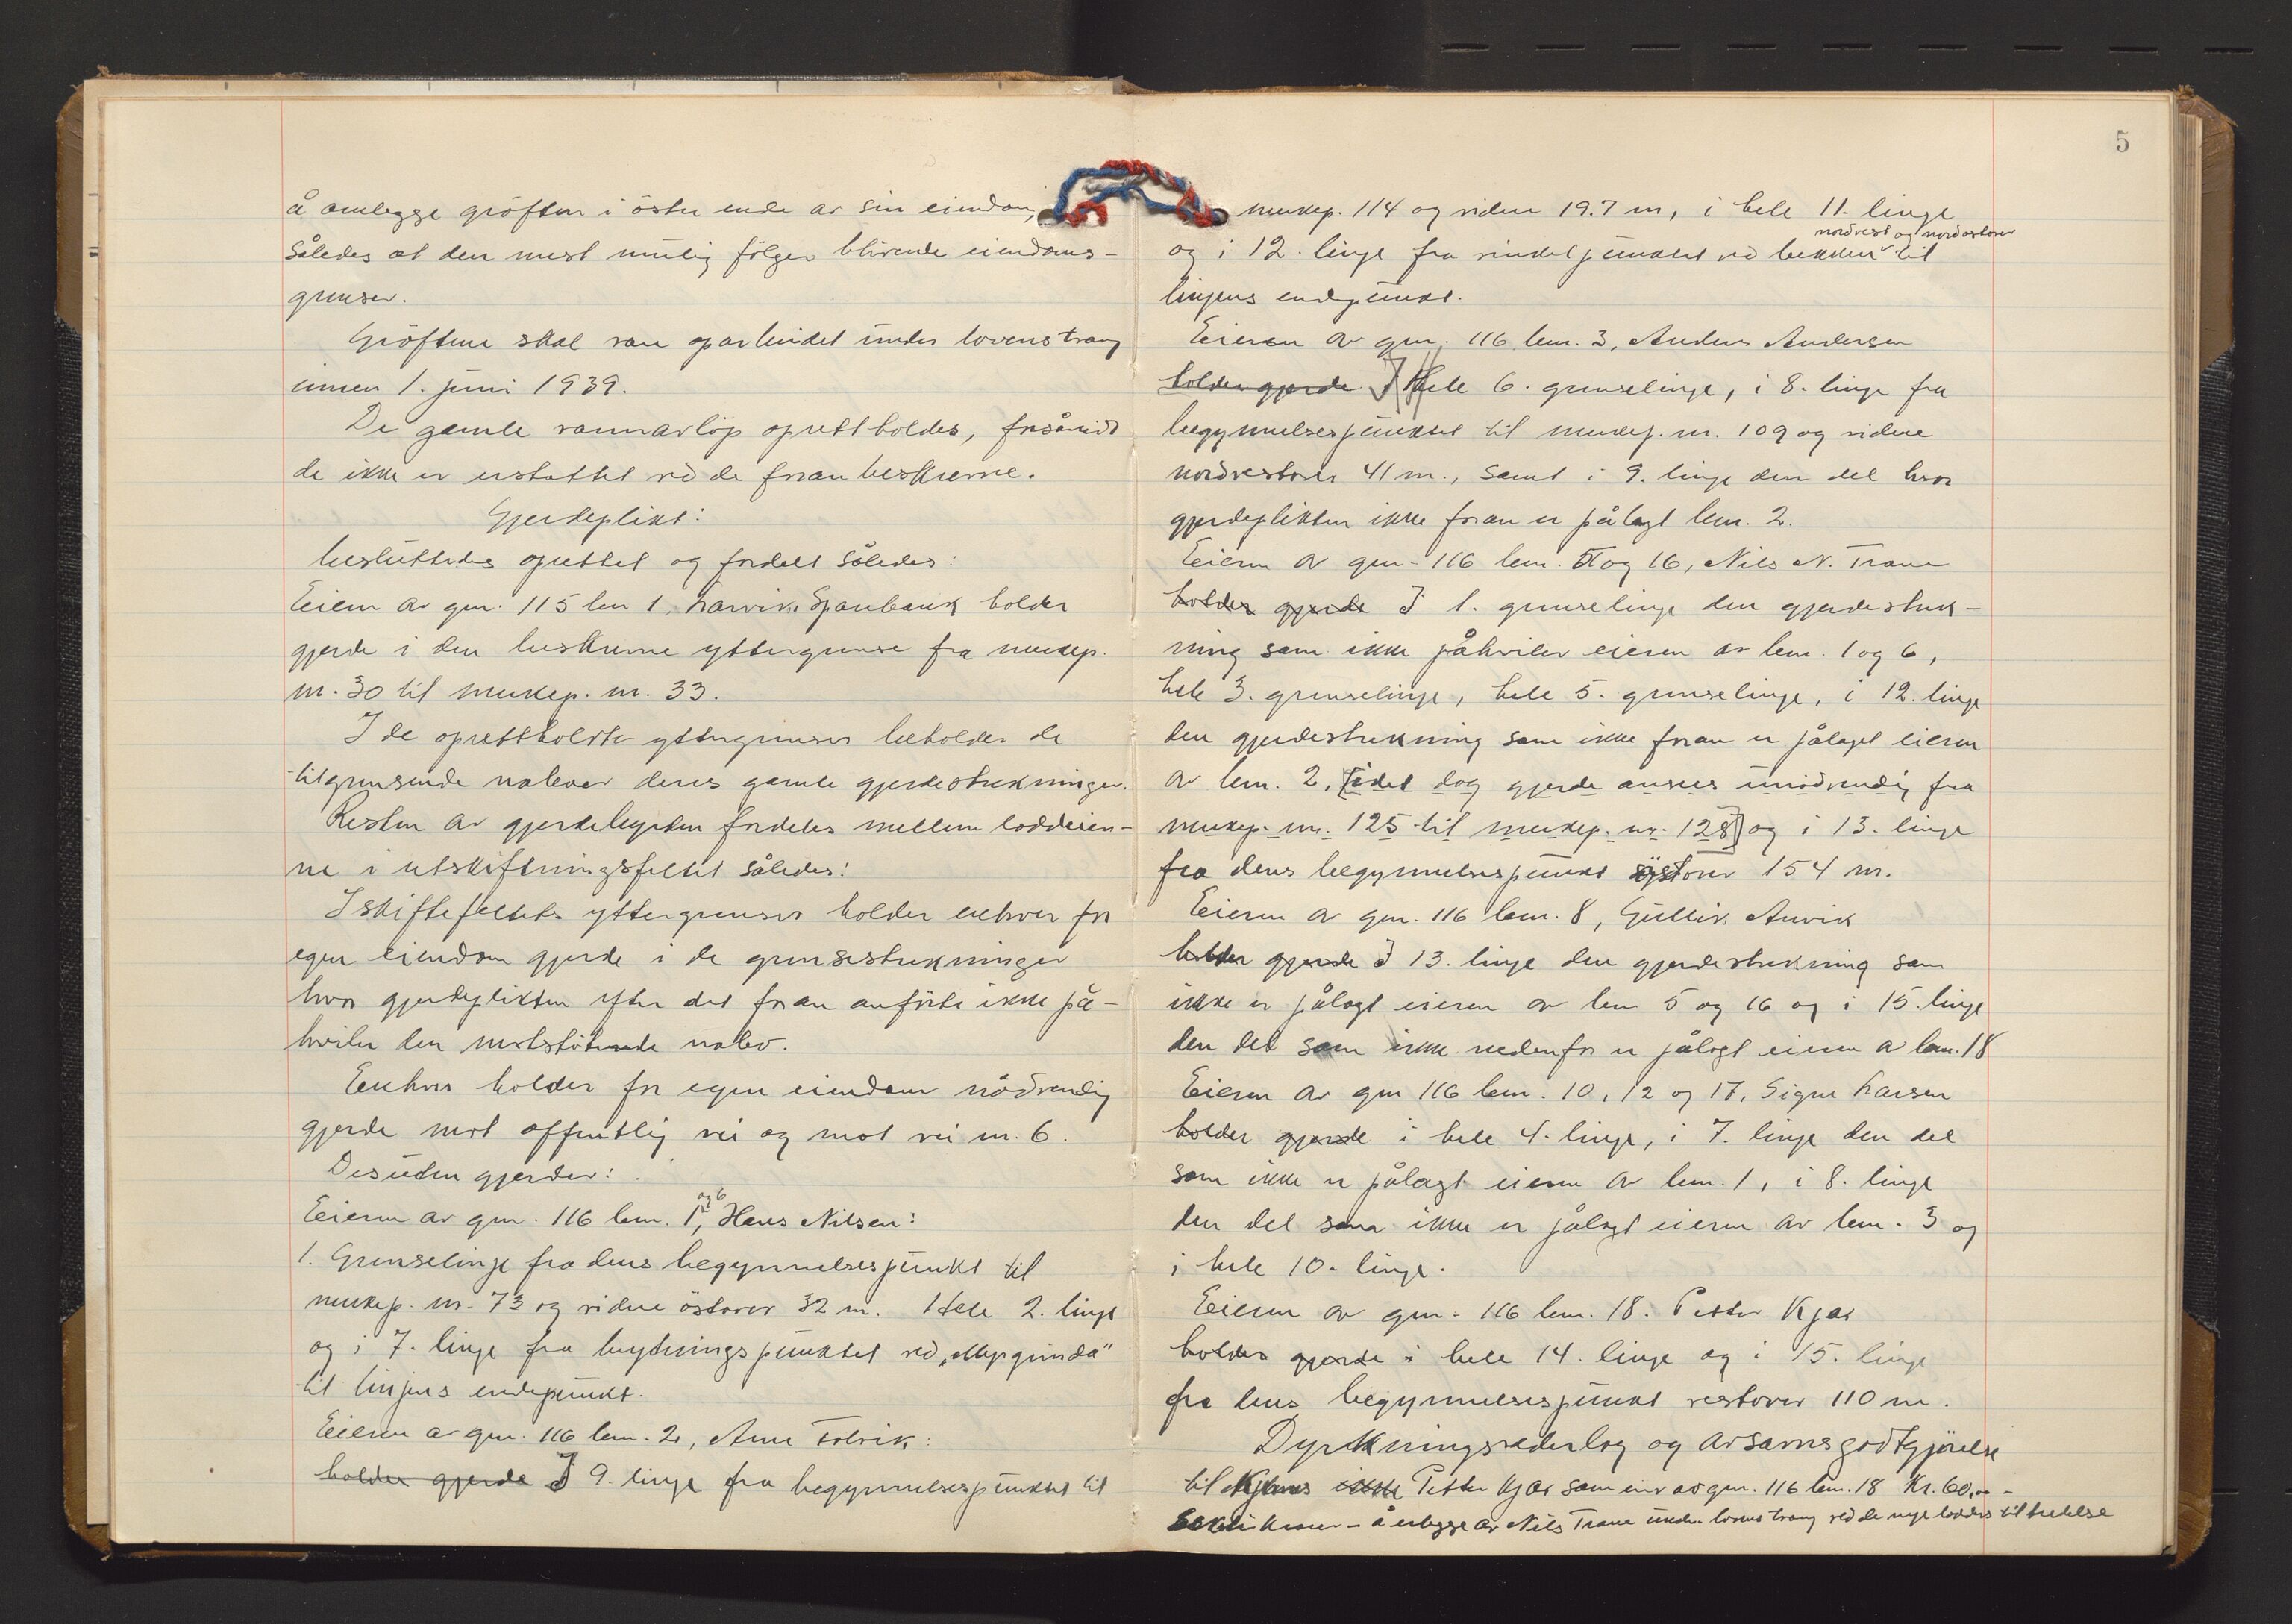 å omlegge gröften i östre ende av sin eiendom,
således at den mest mulig fölger blivende eiendoms-
grenser.
Gröftene skal være oparbeidet under lovens tvang
innen 1. juni 1939.
De gamle vannavlöp oprettholdes, forsåvidt
de ikke er erstattet ved de foran beskrevne.
Gjerdeplikt:
besluttedes oprettet og fordelt således:
Eieren av gnr. 115 bnr 1, Larvik Sparebank holder
gjerde i den beskrevne yttergrense fra merkep.
nr. 30 til merkep. nr. 33.
I de oprettholdte yttergrenser beholder de
tilgrensende naboer deres gamle gjerdestrekninger.
Resten av gjerdebyrden fordeles mellem loddeier-
ne i utskiftningsfeltet således:
I skiftefeltets yttergrenser holder enhver for
egen eiendom gjerde i de grensestrekninger
hvor gjerdeplikten efter det foran anförte ikke på-
hviler den motstötende nabo.
Enhver holder for egen eiendom nödvendig
gjerde mot offentlig vei og mot vei nr. 6.
Desuten gjerder:
Eieren av gnr. 116 bnr. 1 og 6, Hans Nilsen:
1. Grenselinje fra dens begynnelsespunkt til
merkep. nr. 73 og videre östover 32 m. Hele 2. linje
og i 7. linje fra brytningspunktet ved
til linjens endepunkt.
Eieren av gnr. 116 bnr. 2,
holder gjerde I 9. linje fra begynnelsespunktet til
5
merkep. 114 og videre 19.7 m, i hele 11. linje
og i 12. linje fra vinkelpunktet ved bekken nordvest og nordostover til
linjens endepunkt.
Eieren av gnr. 116 bnr. 3, Anders Andersen
holder gjerde I hele 6. grenselinje, i 8. linje fra
begynnelsespunktet til merkep. nr. 109 og videre
nordvestover 41 m., samt i 9. linje den del hvor
gjerdeplikten ikke foran er pålagt bnr. 2.
Eieren av gnr. 116 bnr. 5 og 16, Nils N. Trane
holder gjerde I 1. grenselinje den gjerdestrek-
ning som ikke påhviler eieren av bnr. 1 og 6,
hele 3. grenselinje, hele 5. grenselinje, i 12. linje
den gjerdestrekning som ikke foran er pålagt eieren
av bnr. 2, [idet dog gjerde ansees unödvendig fra
merkep. nr. 125 til merkep. nr. 128] og i 13. linje
fra dens begynnelsespunkt 154 m.
Eieren av gnr. 116 bnr. 8, Gullik Anvik
holder gjerde I 13. linje den gjerdestrekning som
ikke er pålagt eieren av bnr 5 og 16 og i 15. linje
den del som ikke nedenfor er pålagt eieren av bnr. 18
Eieren av gnr 116 bnr. 10, 12 og 17, Signe Larsen
holder gjerde i hele 4. linje, i 7. linje den del
som ikke er pålagt eieren av bnr. 1, i 8. linje
den del som ikke er pålagt eieren av bnr. 3 og
i hele 10. linje.
Eieren av gnr. 116 bnr. 18. Petter Kjær
holder gjerde i hele 14. linje og i 15. linje
fra dens begynnelsespunkt vestover 110 m.
Dyrkningsvederlag og avsavnsgodtgjörelse
til Petter Kjær som eier av gnr. 116 bnr. 18 Kr. 60,00 -
kroner - å erlegge av Nils Trane under lovens tvang ved de nye lodders tiltredelse